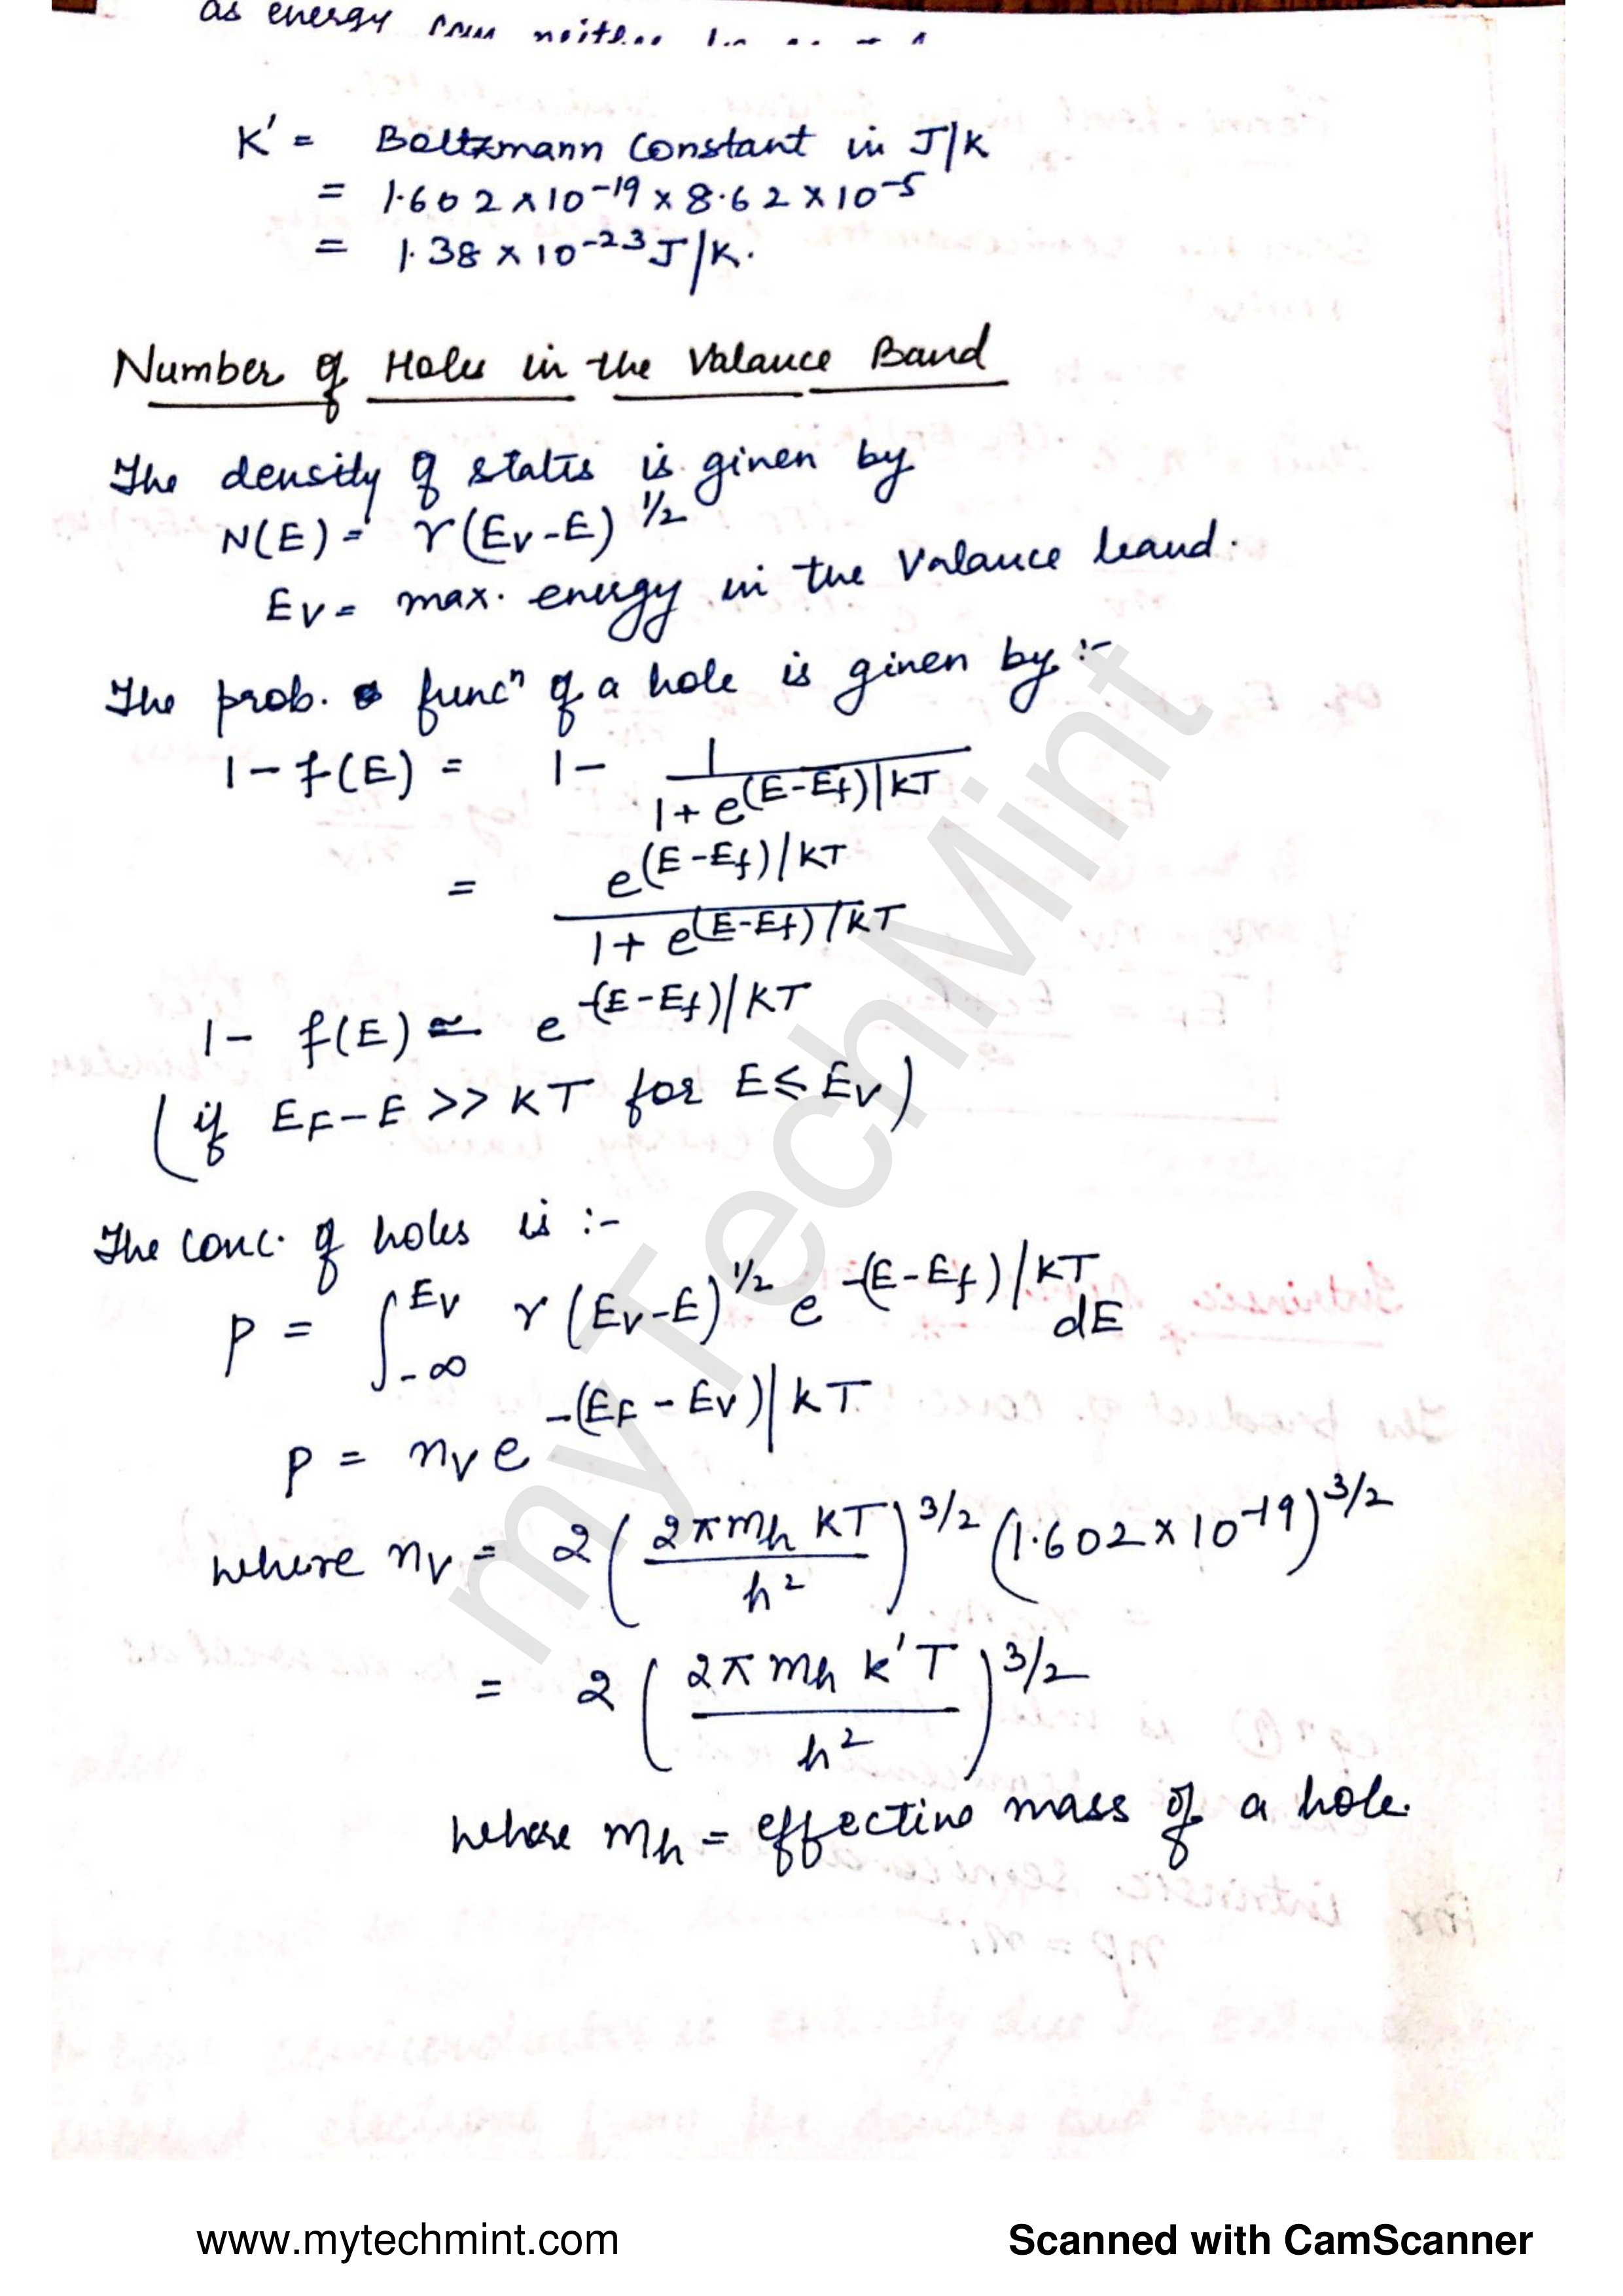 as energy
K' = Boltzmann Constant in J/K
= 1.602 × 10^-19 × 8.62 × 10^-5
= 1.38 × 10^-23 J/K.
Number of Holes in the Valance Band
The density of states is given by
N(E) = γ(Ev-E)^1/2
Ev = max. energy in the Valance band.
The prob. func^n of a hole is given by :-
1 - f(E) = 1 - 1/(1 + e^(E-Ef)/KT)
= e^(E-Ef)/KT / (1 + e^(E-Ef)/KT)
1 - f(E) ≃ e^-(E-Ef)/KT
(if EF-E >> KT for E ≤ Ev)
The conc. of holes is :-
p = ∫_-∞^Ev γ(Ev-E)^1/2 e^-(E-Ef)/KT dE
p = nv e^-(EF-Ev)/KT
where nv = 2(2πmh KT/h^2)^3/2 (1.602 × 10^-19)^3/2
= 2(2πmh K'T/h^2)^3/2
where mh = effective mass of a hole.
myTechMint
www.mytechmint.com
Scanned with CamScanner